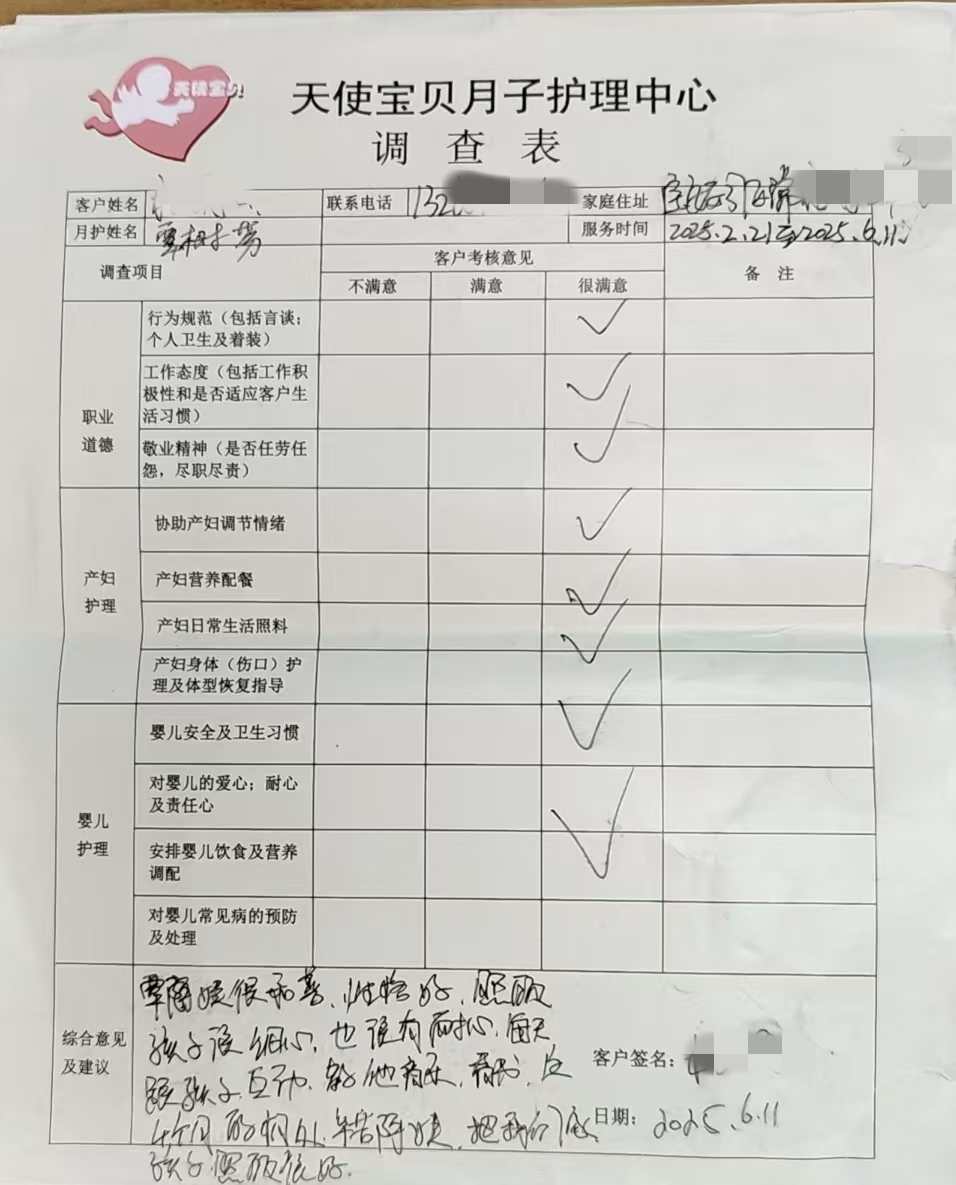 天使宝贝
天使宝贝月子护理中心
调 查 表
客户姓名 联系电话 132 家庭住址
月护姓名 覃相芳 服务时间 2025.2.21至2025.6.11
调查项目 客户考核意见 备 注
不满意 满意 很满意
职业
道德
行为规范（包括言谈；
个人卫生及着装）
工作态度（包括工作积
极性和是否适应客户生
活习惯）
敬业精神（是否任劳任
怨，尽职尽责）
产妇
护理
协助产妇调节情绪
产妇营养配餐
产妇日常生活照料
产妇身体（伤口）护
理及体型恢复指导
婴儿
护理
婴儿安全及卫生习惯
对婴儿的爱心；耐心
及责任心
安排婴儿饮食及营养
调配
对婴儿常见病的预防
及处理
综合意见
及建议
覃阿姨很和善，性格好，照顾
孩子很细心，也很有耐心，每天
跟孩子互动，给他音乐，看书，这
4个月的相处，辛苦阿姨，把我们家
孩子照顾很好.
客户签名：
日期： 2025.6.11